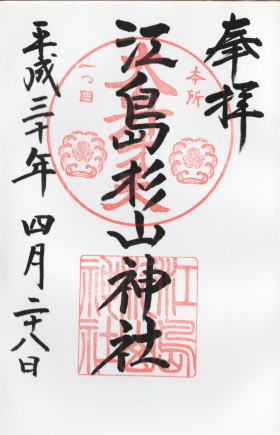 奉拝
本所
一つ目
江島杉山神社
平成三十年 四月二十八日
江島杉山神社